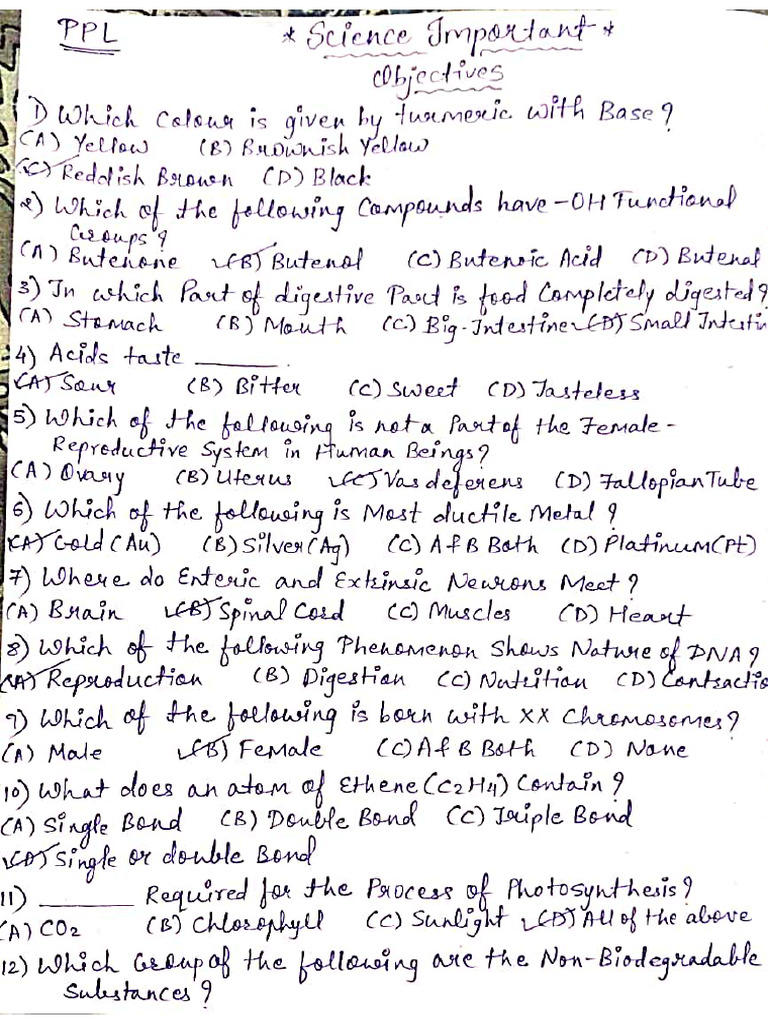 PPL * Science Important *
Objectives
1) Which Colour is given by turmeric with Base ?
(A) Yellow (B) Brownish Yellow
(C) Reddish Brown (D) Black
2) Which of the following Compounds have -OH Functional
Groups ?
(A) Butenone (B) Butenol (C) Butenoic Acid (D) Butenal
3) In which Part of digestive Part is food Completely digested ?
(A) Stomach (B) Mouth (C) Big-Intestine (D) Small Intestin
4) Acids taste ______.
(A) Sour (B) Bitter (C) Sweet (D) Tasteless
5) Which of the following is not a Part of the Female-
Reproductive System in Human Beings ?
(A) Ovary (B) Uterus (C) Vas deferens (D) Fallopian Tube
6) Which of the following is Most ductile Metal ?
(A) Gold (Au) (B) Silver (Ag) (C) A & B Both (D) Platinum (Pt)
7) Where do Enteric and Extrinsic Neurons Meet ?
(A) Brain (B) Spinal Cord (C) Muscles (D) Heart
8) Which of the following Phenomenon Shows Nature of DNA ?
(A) Reproduction (B) Digestion (C) Nutrition (D) Contractio
9) Which of the following is born with XX Chromosomes ?
(A) Male (B) Female (C) A & B Both (D) None
10) What does an atom of Ethene (C2H4) Contain ?
(A) Single Bond (B) Double Bond (C) Triple Bond
(D) Single or double Bond
11) ______ Required for the Process of Photosynthesis ?
(A) CO2 (B) Chlorophyll (C) Sunlight (D) All of the above
12) Which Group of the following are the Non-Biodegradable
Substances ?